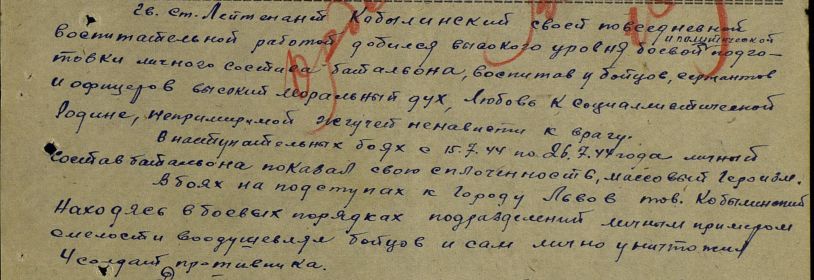 Гв. ст. Лейтенант Кобылинский своей повседневной
воспитательной работой добился высокого уровня боевой и политической подго-
товки личного состава батальона, воспитав у бойцов, сержантов
и офицеров высокий моральный дух, любовь к социалистической
Родине, непримиримой жгучей ненависти к врагу.
В наступательных боях с 15.7.44 по 26.7.44 года личный
состав батальона показал свою сплоченность, массовый героизм.
В боях на подступах к городу Львов тов. Кобылинский
находясь в боевых порядках подразделений личным примером
смелости воодушевлял бойцов и сам лично уничтожил
4 солдат противника.